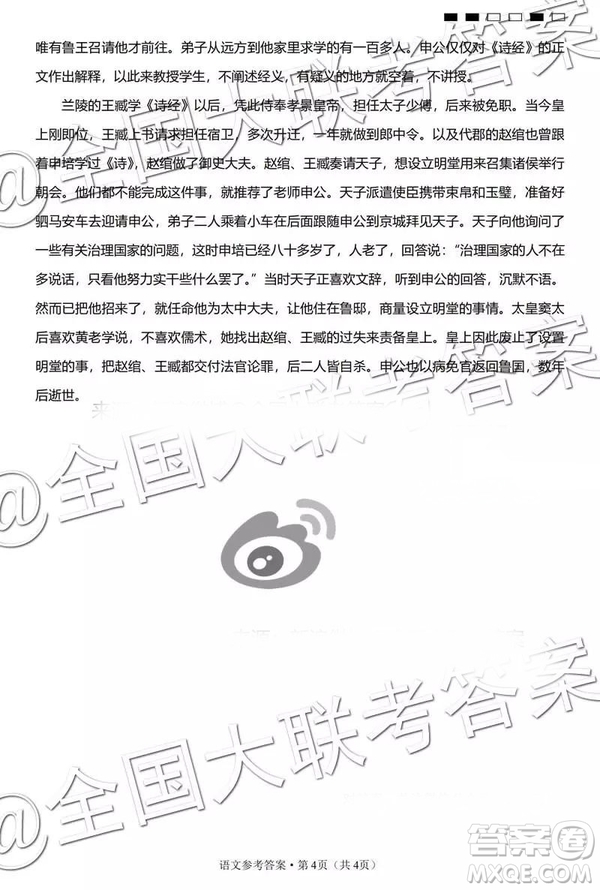 唯有鲁王召请他才前往。弟子从远方到他家里求学的有一百多人。申公仅仅对《诗经》的正
文作出解释，以此来教授学生，不阐述经义，有疑义的地方就空着，不讲授。
兰陵的王臧学《诗经》以后，凭此侍奉孝景皇帝，担任太子少傅，后来被免职。当今皇
上刚即位，王臧上书请求担任宿卫，多次升迁，一年内做到郎中令。以及代郡的赵绾也曾跟
着申培学过《诗》，赵绾做了御史大夫。赵绾、王臧奏请天子，想设立明堂用来召集诸侯举行
朝会。他们都不能完成这件事，就推荐了老师申公。天子派遣使臣携带束帛和玉璧，准备好
驷马安车去迎请申公，弟子二人乘着小车在后面跟随申公到京城拜见天子。天子向他询问了
一些有关治理国家的问题，这时申培已经八十多岁了，人老了，回答说：“治理国家的人不在
多说话，只看他努力实干些什么罢了。”当时天子正喜欢文辞，听到申公的回答，沉默不语。
然而已把他招来了，就任命他为太中大夫，让他住在鲁邸，商量设立明堂的事情。太皇窦太
后喜欢黄老学说，不喜欢儒术，她找出赵绾、王臧的过失来责备皇上。皇上因此废止了设置
明堂的事，把赵绾、王臧都交付法官论罪，后二人皆自杀。申公也以病免官返回鲁国，数年
后逝世。
@全国大联考答案
@全国大联考答案
@全国大联考答案
语文参考答案·第4页（共4页）
答案圈
MXQE.COM